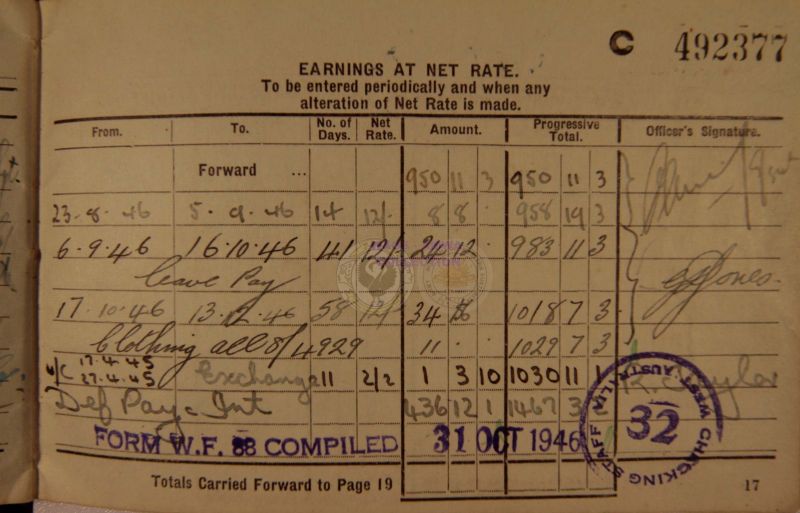 C 492377
EARNINGS AT NET RATE.
To be entered periodically and when any
alteration of Net Rate is made.
From. To. No. of Days. Net Rate. Amount. Progressive Total. Officer's Signature.
Forward ... 950 11 3 950 11 3
23-8-46 5-9-46 14 12/- 8 8 958 19 3
6.9.46 16.10.46 41 12/- 24 12 . 983 11 3
Leave Pay G Jones
17.10.46 13.12.46 58 12/- 34 16 1018 7 3
Clothing all 8/4929 11 . 1029 7 3
u/c 17.4.45
27.4.45 Exchange 11 2/2 1 3 10 1030 11 1 Taylor
Def Pay & Int 436 12 1 1467 3 2
FORM W.F. 88 COMPILED 31 OCT 1946
CHECKING STAFF WEST AUSTRALIA
32
Totals Carried Forward to Page 19 17